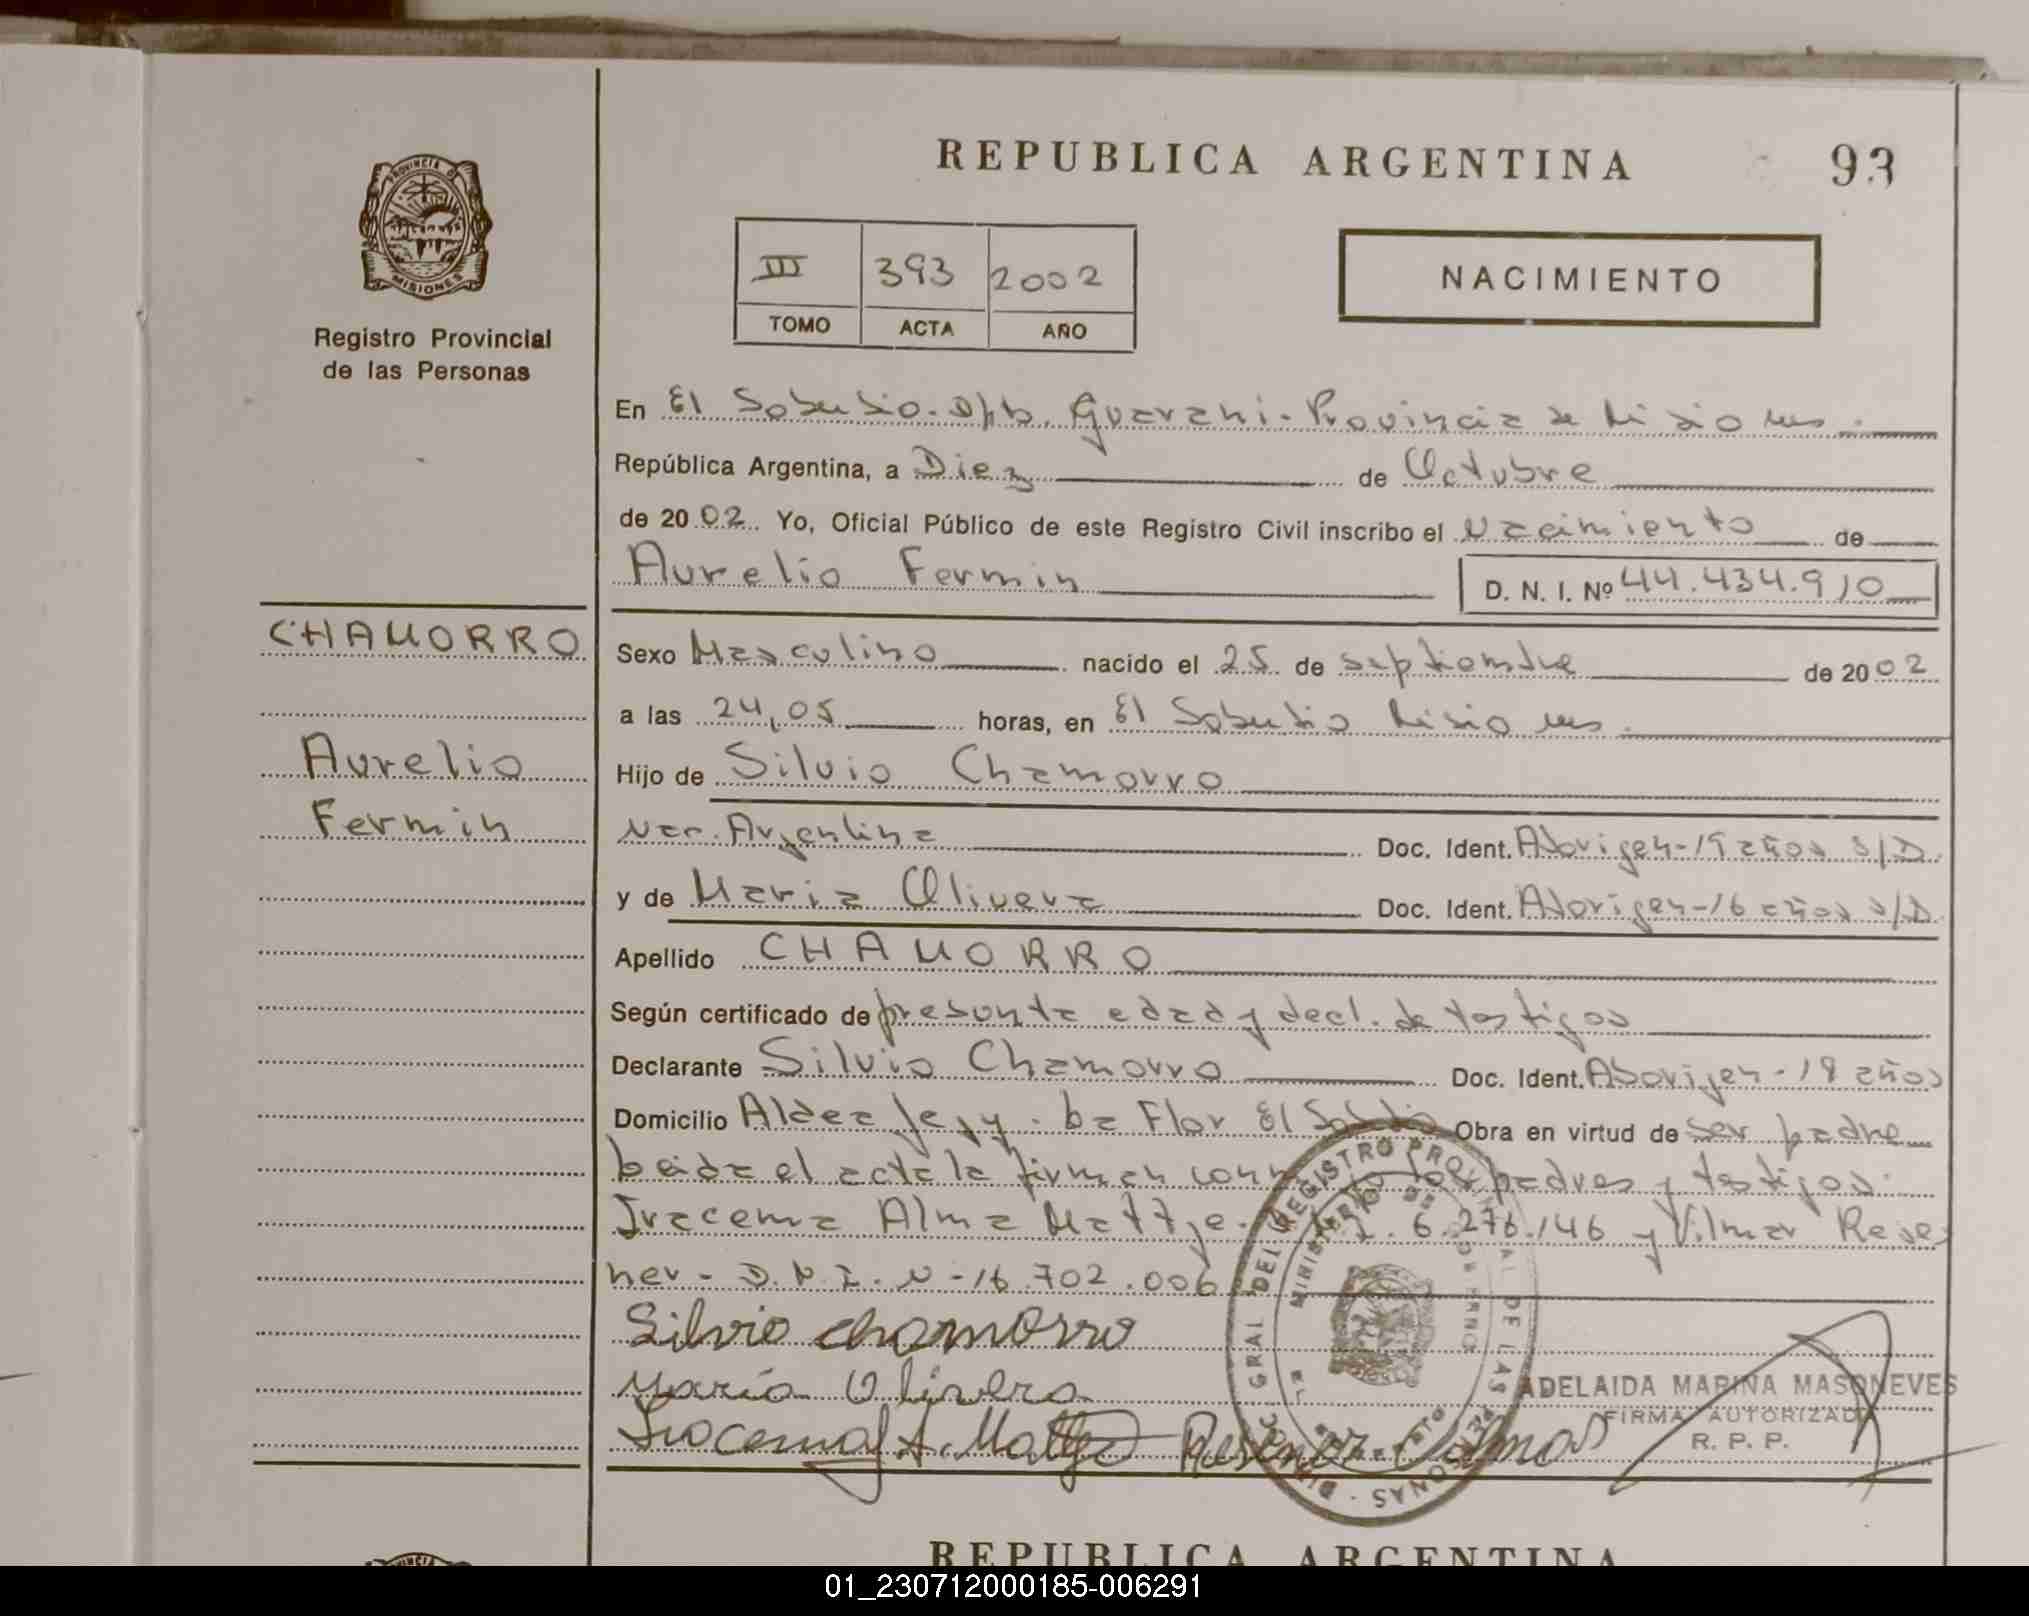 REPUBLICA ARGENTINA
93
PROVINCIA D
MISIONES
Registro Provincial
de las Personas
III 393 2002
TOMO ACTA AÑO
NACIMIENTO
En El Soberbio. Dpto. Guarani - Provincia de Misiones.
República Argentina, a Diez de Octubre
de 2002 Yo, Oficial Público de este Registro Civil inscribo el Nacimiento de
Aurelio Fermin D. N. I. Nº 44.434.910
CHAMORRO
Aurelio
Fermin
Sexo Masculino nacido el 25 de septiembre de 2002
a las 24,05 horas, en El Soberbio Misiones.
Hijo de Silvio Chamorro
Nac. Argentina Doc. Ident. Aborigen-19 años S/D.
y de Maria Olivera Doc. Ident. Aborigen-16 años S/D.
Apellido CHAMORRO
Según certificado de presunta edad y decl. de testigos
Declarante Silvio Chamorro Doc. Ident. Aborigen-19 años
Domicilio Aldea Jejy. La Flor El Soberbio Obra en virtud de ser padre
Leida el acta la firman conmigo los padres y testigos.
Iracema Alma Mattje. 6.276.146 y Vilmar Rese
ner - D.N.I. N-16.702.006
Silvio chamorro
María Olivera
Iracema A. Mattje Resener
DIRECC. GRAL DEL REGISTRO PROVINCIAL DE LAS PERSONAS
ADELAIDA MARINA MASONEVES
FIRMA AUTORIZADA
R. P. P.
REPUBLICA ARGENTINA
01_230712000185-006291